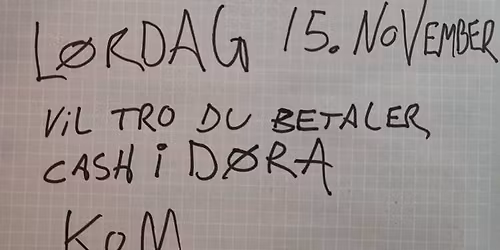 LØRDAG 15. NOVEMBER
ViL TRO DU BETALER,
CASH i DØRA
KOM